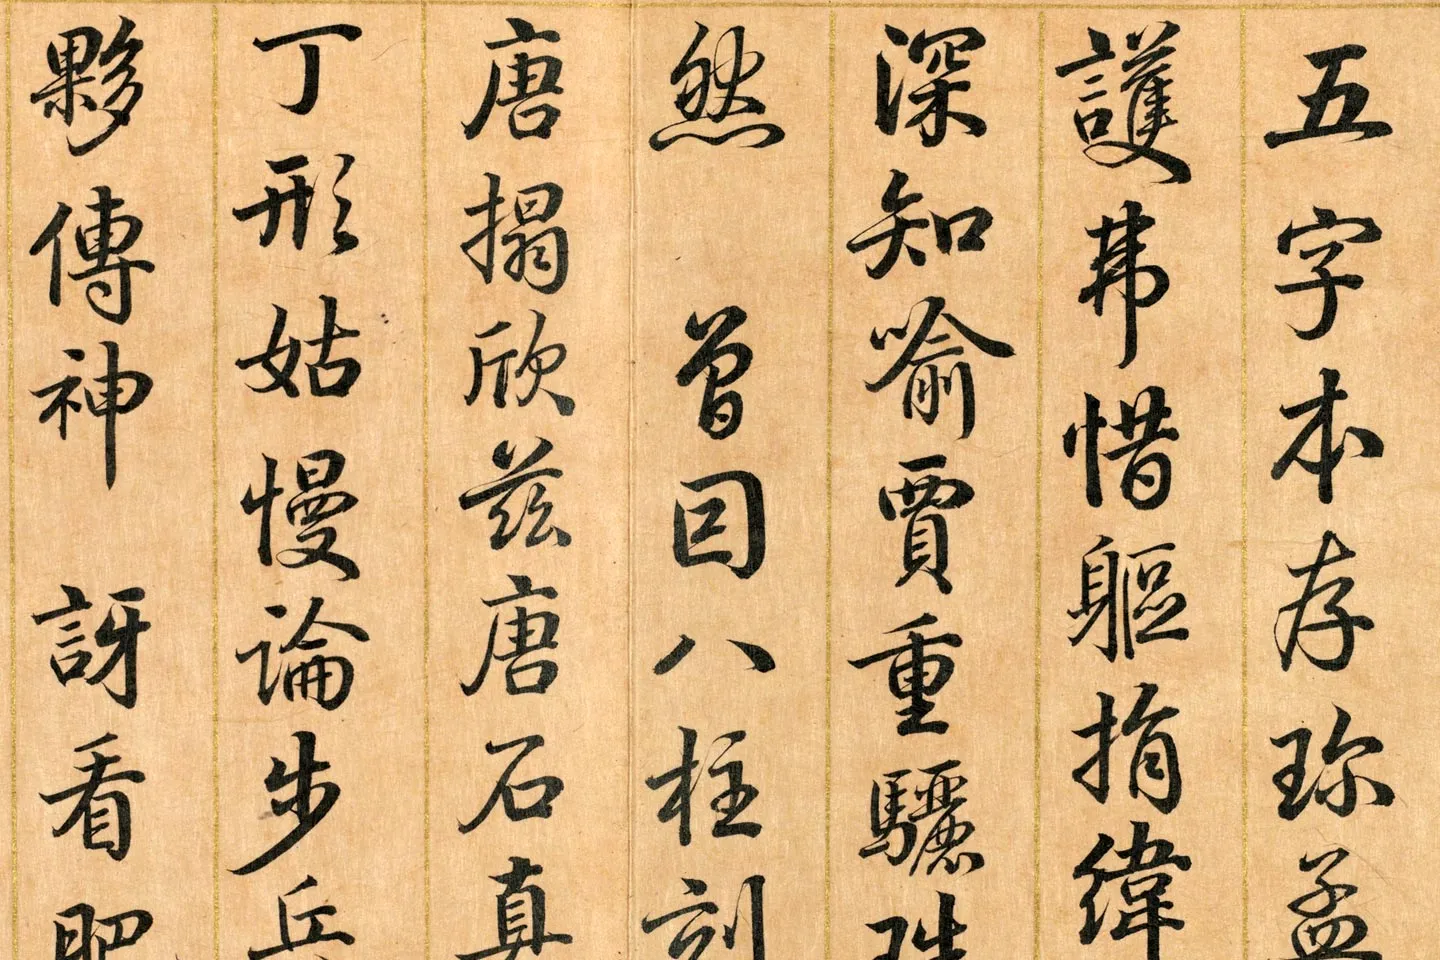 五字本存珍孟
護弗惜軀捐緯
深知喻賈重驪珠
然 曾因八柱刻
唐搨欣茲唐石真
丁形姑慢論步兵
夥傳神 訝看肥